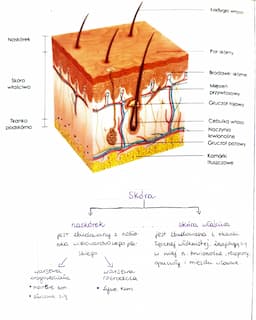 Łodyga włosa
Naskórek
Por skórny
Brodawki skórne
Skóra
właściwa
Mięsień
przywłosowy
Gruczoł łojowy
Tkanka
podskórna
Cebulka włosa
Naczynia
krwionośne
Gruczoł potowy
Komórki
tłuszczowe
Skóra
naskórek
jest zbudowany z nabło
nka wielowarstwowego pła
skiego
skóra właściwa
jest zbudowana z tkanki
łącznej włóknistej, znajdują się
w niej n. krwionośne, receptory,
gruczoły i mięśnie włosowe
warstwa
warstwa
rozrodcza
• martwe kom
• żywe kom